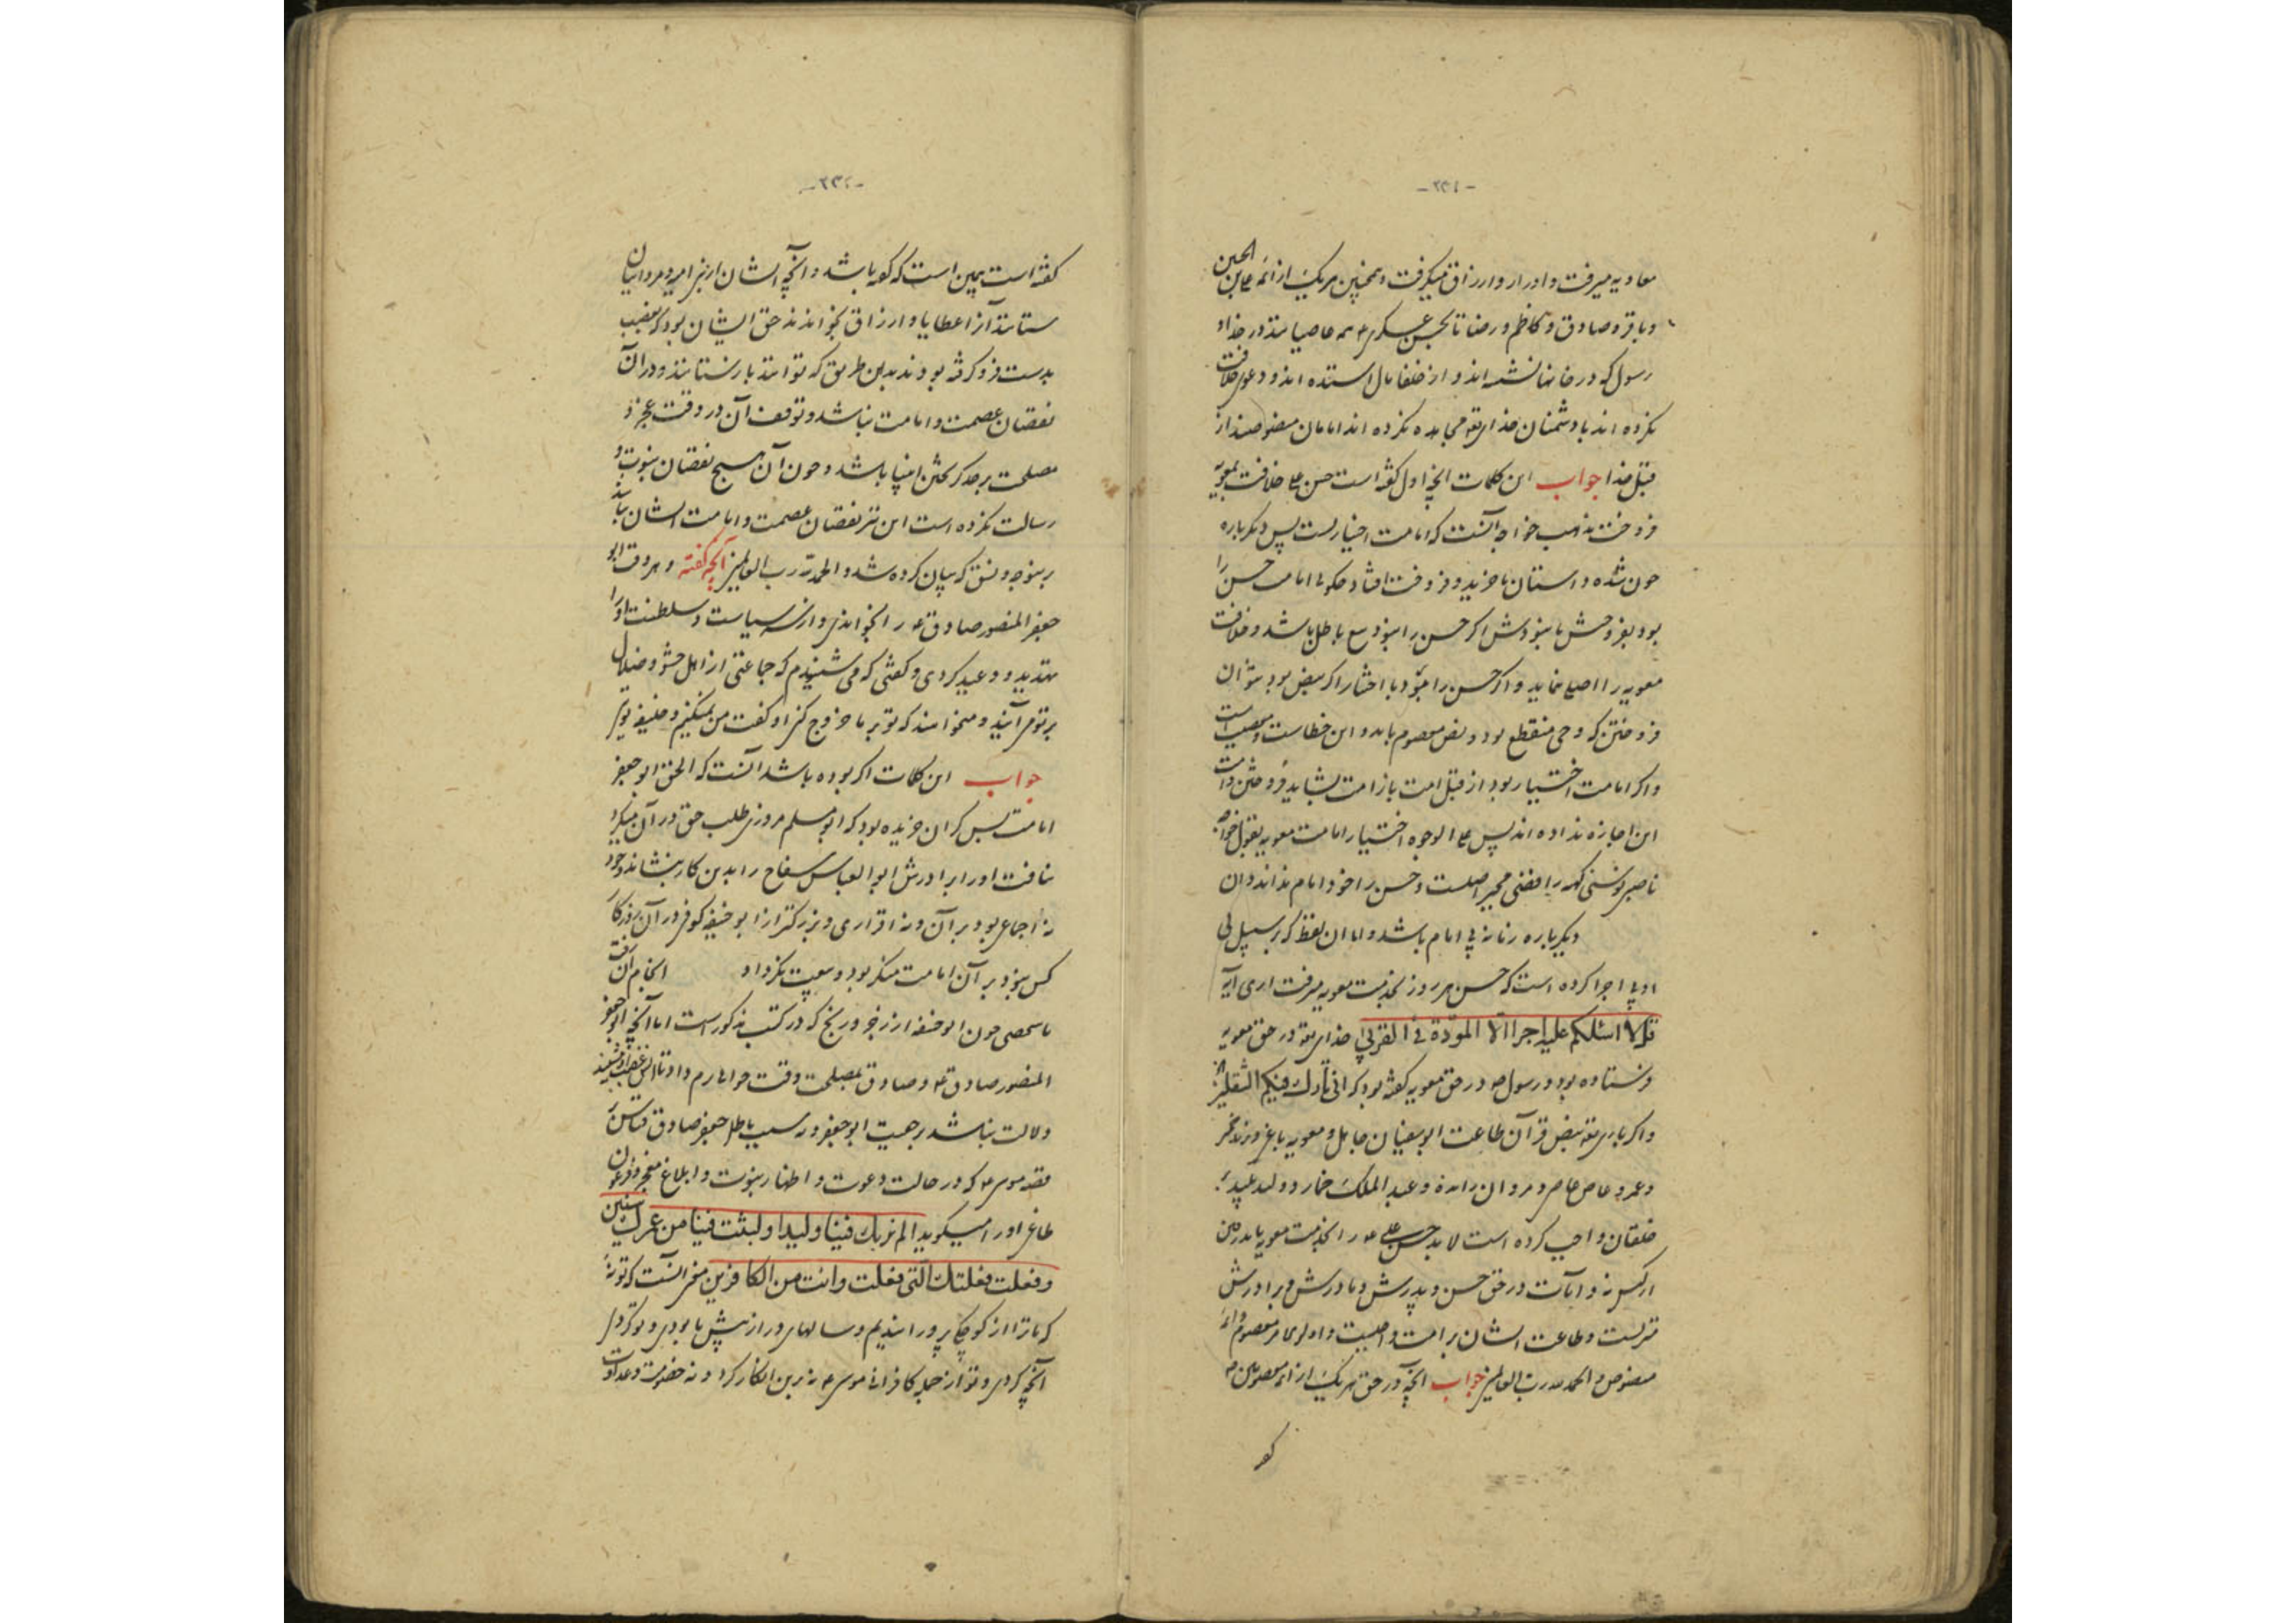 -۲۳۱-
معاویه میرفت و ادرار و ارزاق میگرفت و همچنین هریک از ائمه علی بن الحسین
و باقر و صادق و کاظم و رضا تا بحسن عسکری ع همه عاصیانند در خدا و
رسول که در خانها نشسته اند و از خلفا مال استده اند و دعوی خلافت
نکرده اند با دشمنان خدای تع مجاهده نکرده اند امامان منصوصند از
قبل خدا جواب این کلمات انچه اول گفته است حسن علی خلافت بمعویه
فروخت مذهب خواجه آنست که امامت اختیارست پس دیگرباره
چون شده و استان با خرید و فروخت افتاد چگونه امامت حسن را
بود بفروختش یا نبودش اگر حسن را نبود بیع باطل باشد و خلافت
معویه را اصلی نماند و اگر حسن را بود با اختیار اگر بنص بود نتوان
فروختن که وحی منقطع بود و نص معصوم باید و این خطاست و معصیت است
و اگر امامت اختیار بود از قبل امت باز امت نشاید فروختن و امت
این اجازه نداده اند پس علی الوجوه اختیار امامت معویه بقول خواجه
ناصبی نوسنی کهنه رافضی مجبر اصلست و حسن را خود امام نداند و آن
دیگرباره زمانه بی امام باشد و اما آن لفظ که بر سبیل بی
ادبی اجرا کرده است که حسن هر روز بخدمت معویه میرفت آری آیه
قل لا اسئلکم علیه اجرا الا المودة فی القربی خدای تع در حق معویه
فرستاده بود و رسول ص در حق معویه گفته بود که انی تارک فیکم الثقلین
و اگر باری تع بنص قرآن طاعت ابوسفیان جاهل و معویه باغی و یزید خمر
و عمرو عاص عاصی و مروان رانده و عبد الملک خمار و ولید عنید بر
خلقان واجب کرده است لابد حسن علی ع را بخدمت معویه باید رفتن
ار کس نه و آیات در حق حسن و پدرش و مادرش و برادرش
منزلست و طاعت ایشان بر امت واجبست و اولی الامر معصوم و ائمه
منصوص و الحمد لله رب العالمین جواب آنچه در حق هریک از ائمه معصومین ع
کفته
-۲۳۲-
کفته است همین است که کفته باشد و آنچه ایشان از بنی امیه و مروانیان
ستانند آنرا عطایا و ارزاق نخوانند حق ایشان بود که بغصب
بدست فرو گرفته بودند بدین طریق که توانند باز ستانند و در آن
نقصان عصمت و امامت نباشد و توقف آن در وقت عجز و
مصلحت بر حد گریختن انبیا باشد و چون آن هیچ نقصان نبوت و
رسالت نکرده است این نیز نقصان عصمت و امامت ایشان نباشد
برینوجه و نسق که بیان کرده شد و الحمد لله رب العالمین آنچه گفته و هر وقت ابو
جعفر المنصور صادق ع را بخواندی و از سر سیاست و سلطنت او را
تهدید و وعید کردی و گفتی که می شنیدم که جماعتی از اهل حشو و ضلال
بر تو می آیند و میخواهند که تو بر ما خروج کنی او گفت من نمیکنم و خلیفه تویی
جواب این کلمات اگر بوده باشد آنست که الحق ابو جعفر
امامت بس گران خریده بود که ابو مسلم مروزی طلب حق در آن میکرد
نیافت او را برادرش ابو العباس سفاح را بدین کار بنشاند و خود
نه اجماعی بود بر آن و نه اقراری و بزرگتر از ابو حنیفه کوفی در آن روزگار
کس نبود بر آن امامت منکر بود و بیعت نکرد او انجام آن رفت
با شخصی چون ابو حنیفه از زجر و رنج که در کتب مذکور است اما آنچه ابو جعفر
المنصور صادق ع و صادق بمصلحت وقت جوابی نرم داد تا آتش غضب او بنشیند
دلالت نباشد بر حقیت ابو جعفر و نه سبب باطل جعفر صادق قیاس بر
قصه موسی ع که در حالت دعوت و اظهار نبوت و ابلاغ معجز فرعون
طاغی او را میگوید الم نربک فینا ولیدا و لبثت فینا من عمرک سنین
و فعلت فعلتک التی فعلت و انت من الکافرین معنی آنست که تو نه
که ما ترا از کوچکی پرورانیدیم و سالهای دراز پیش ما بودی و تو کردی
آنچه کردی و تو از جمله کافرانی موسی ع نه برین انکار کرد و نه خصومت و عداوت